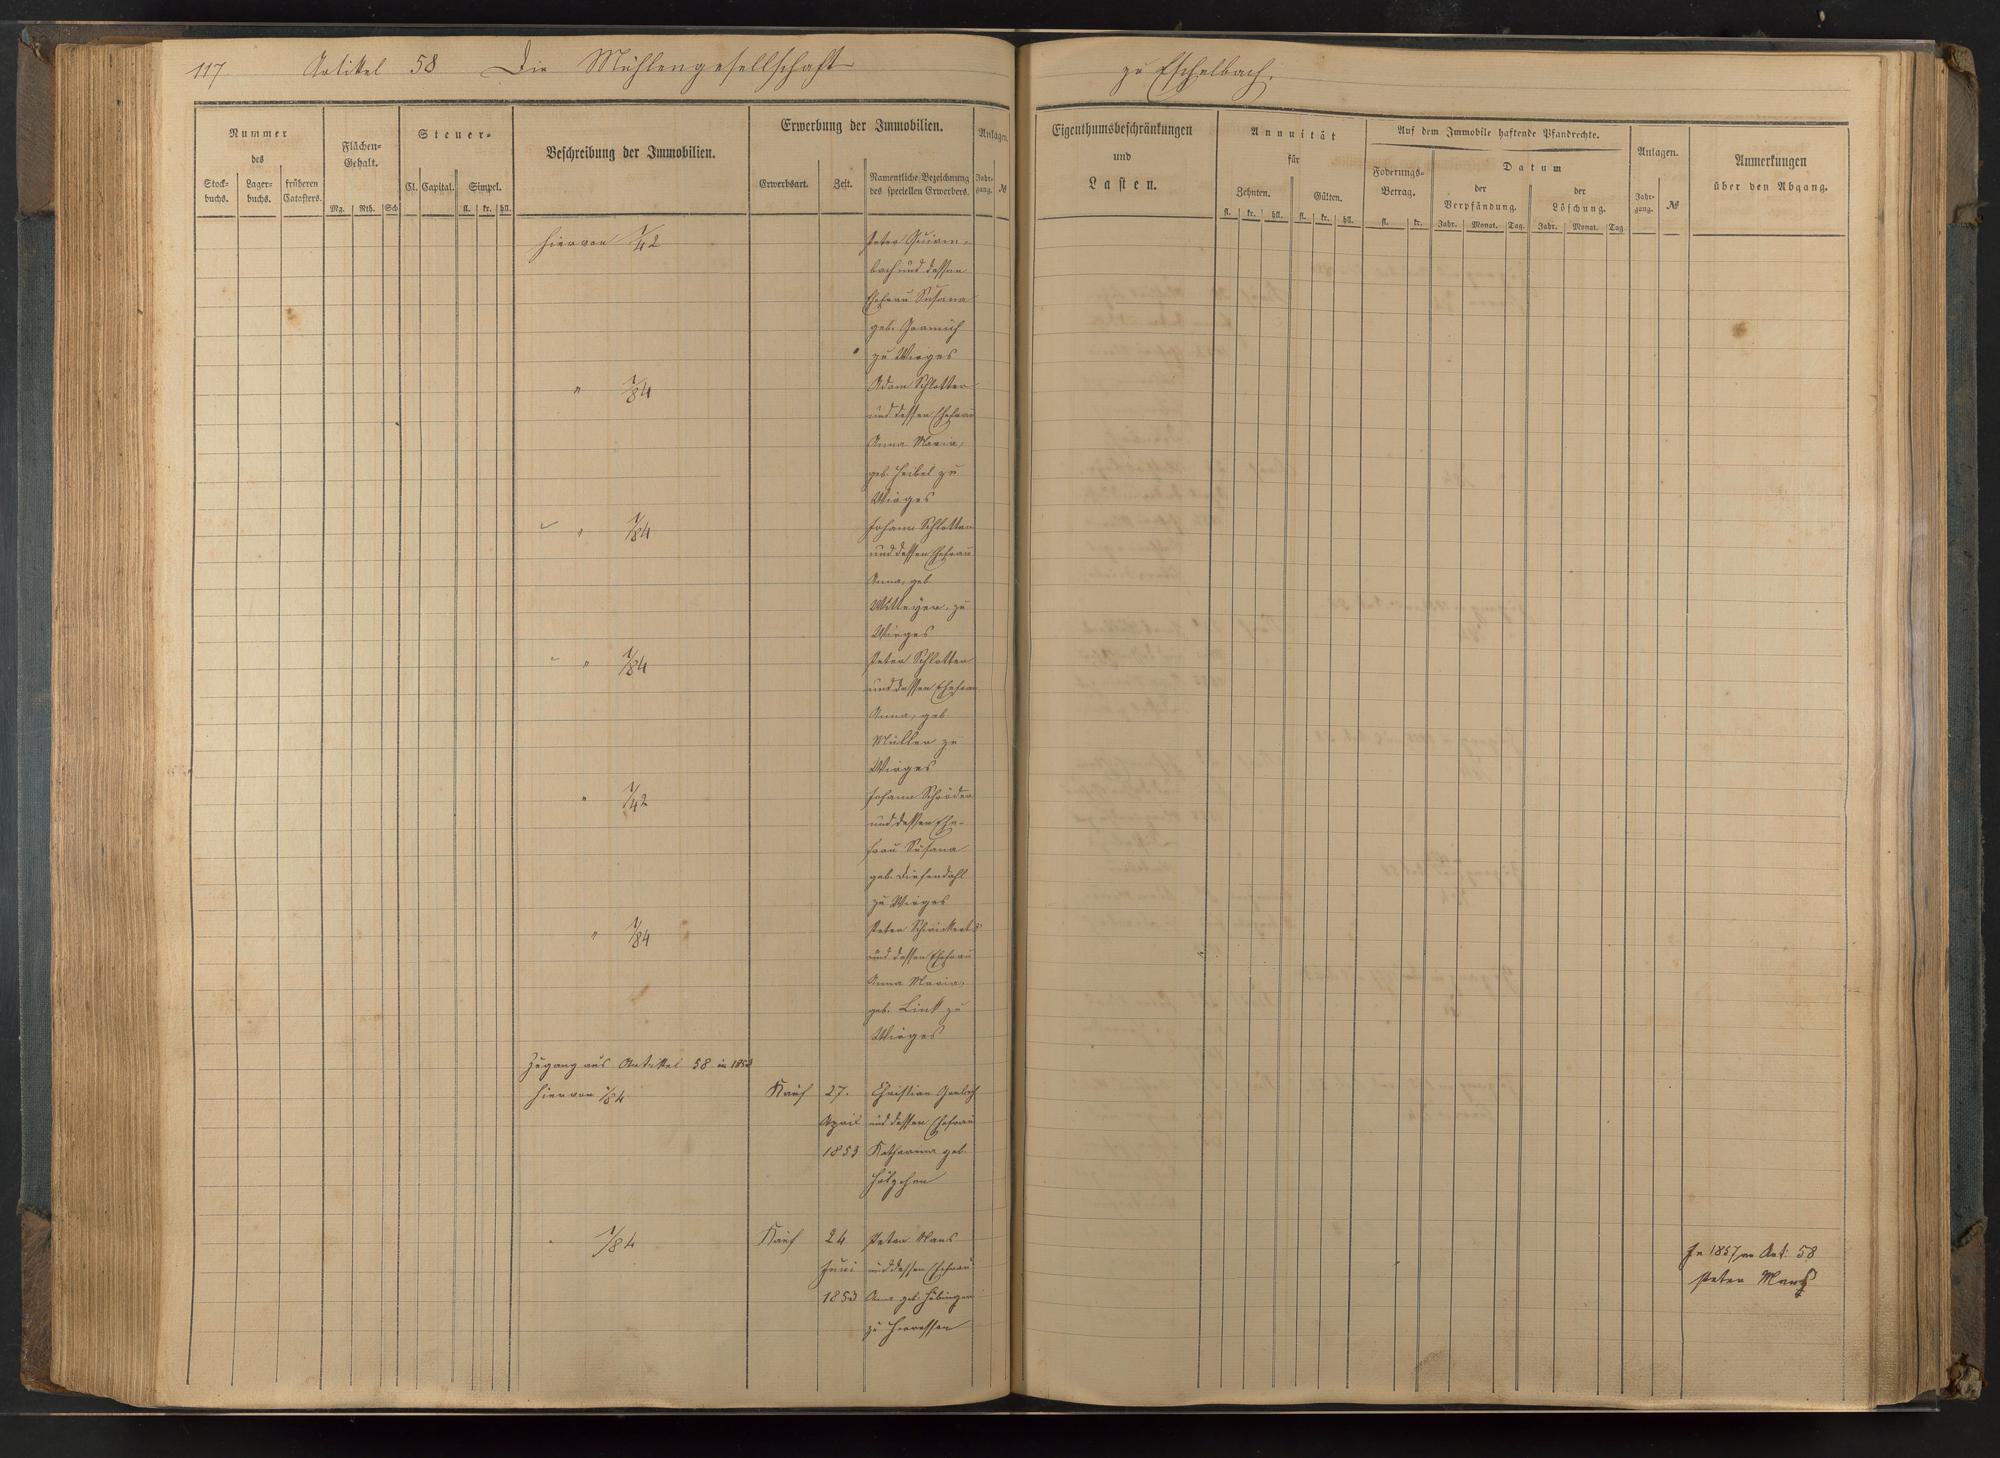 117. Artikel 58 Die Mühlengesellschaft zu Eschelbach.
Nummer
des
Stock-
buchs.
Lager-
buchs.
früheren
Catasters.
Flächen-
Gehalt.
Mg. Rth. Sch
Steuer-
Cl. Capital. Simpel.
fl. kr. hll.
Beschreibung der Immobilien.
Erwerbung der Immobilien.
Erwerbsart. Zeit.
Namentliche Bezeichnung
des speciellen Erwerbers.
Anlagen.
Jahr-
gang. №
Eigenthumsbeschränkungen
und
Lasten.
Annuität
für
Zehnten. Gülten.
fl. kr. hll. fl. kr. hll.
Auf dem Immobile haftende Pfandrechte.
Foderungs-
Betrag.
fl. kr.
Datum
der
Verpfändung.
Jahr. Monat. Tag.
der
Löschung.
Jahr. Monat. Tag
Anlagen.
Jahr-
gang. №
Anmerkungen
über den Abgang.
hiervon 1/42 Peter Quirm-
bach und dessen
Ehefrau Susana
geb.
zu Wirges
" 1/84 Adam Schlotter
und dessen Ehefrau
Anna Maria,
geb. Heibel zu
Wirges
" 1/84 Johann Schlotter
und dessen Ehefrau
Anna, geb.
zu
Wirges
" 1/84 Peter Schlotter
und dessen Ehefrau
Anna, geb.
Müller zu
Wirges
" 1/42 Johann Schröder
und dessen Ehe-
frau Susana
geb. Diefendahl
zu Wirges
" 1/84 Peter Schwickert
und dessen Ehefrau
Anna Maria,
geb. Link zu
Wirges
Zugang aus Artikel 58 in 1853
hiervon 1/84 Kauf 27. Christian
April und dessen Ehefrau
1853 Katharina geb.
" 1/84 Kauf 24 Peter Mans
Juni und dessen Ehefrau
1853 Anna geb. Hübinger
zu
In 1857 an Art: 58
Peter Mans